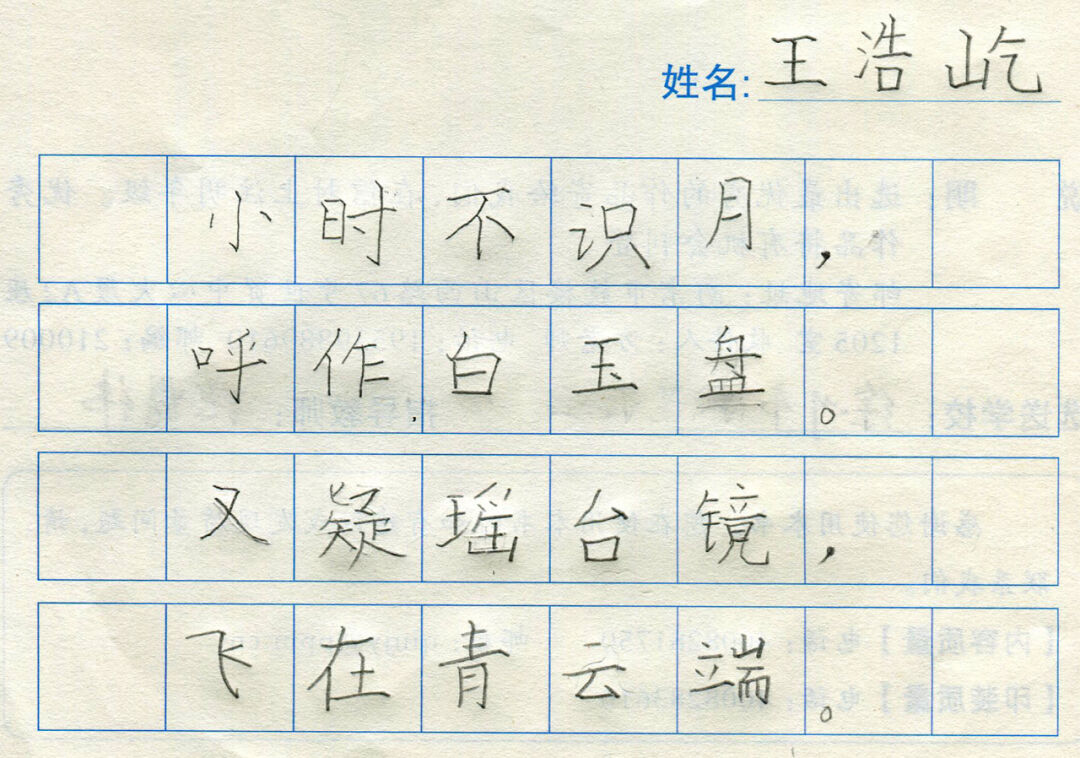 姓名: 王浩屹
小时不识月，
呼作白玉盘。
又疑瑶台镜，
飞在青云端。